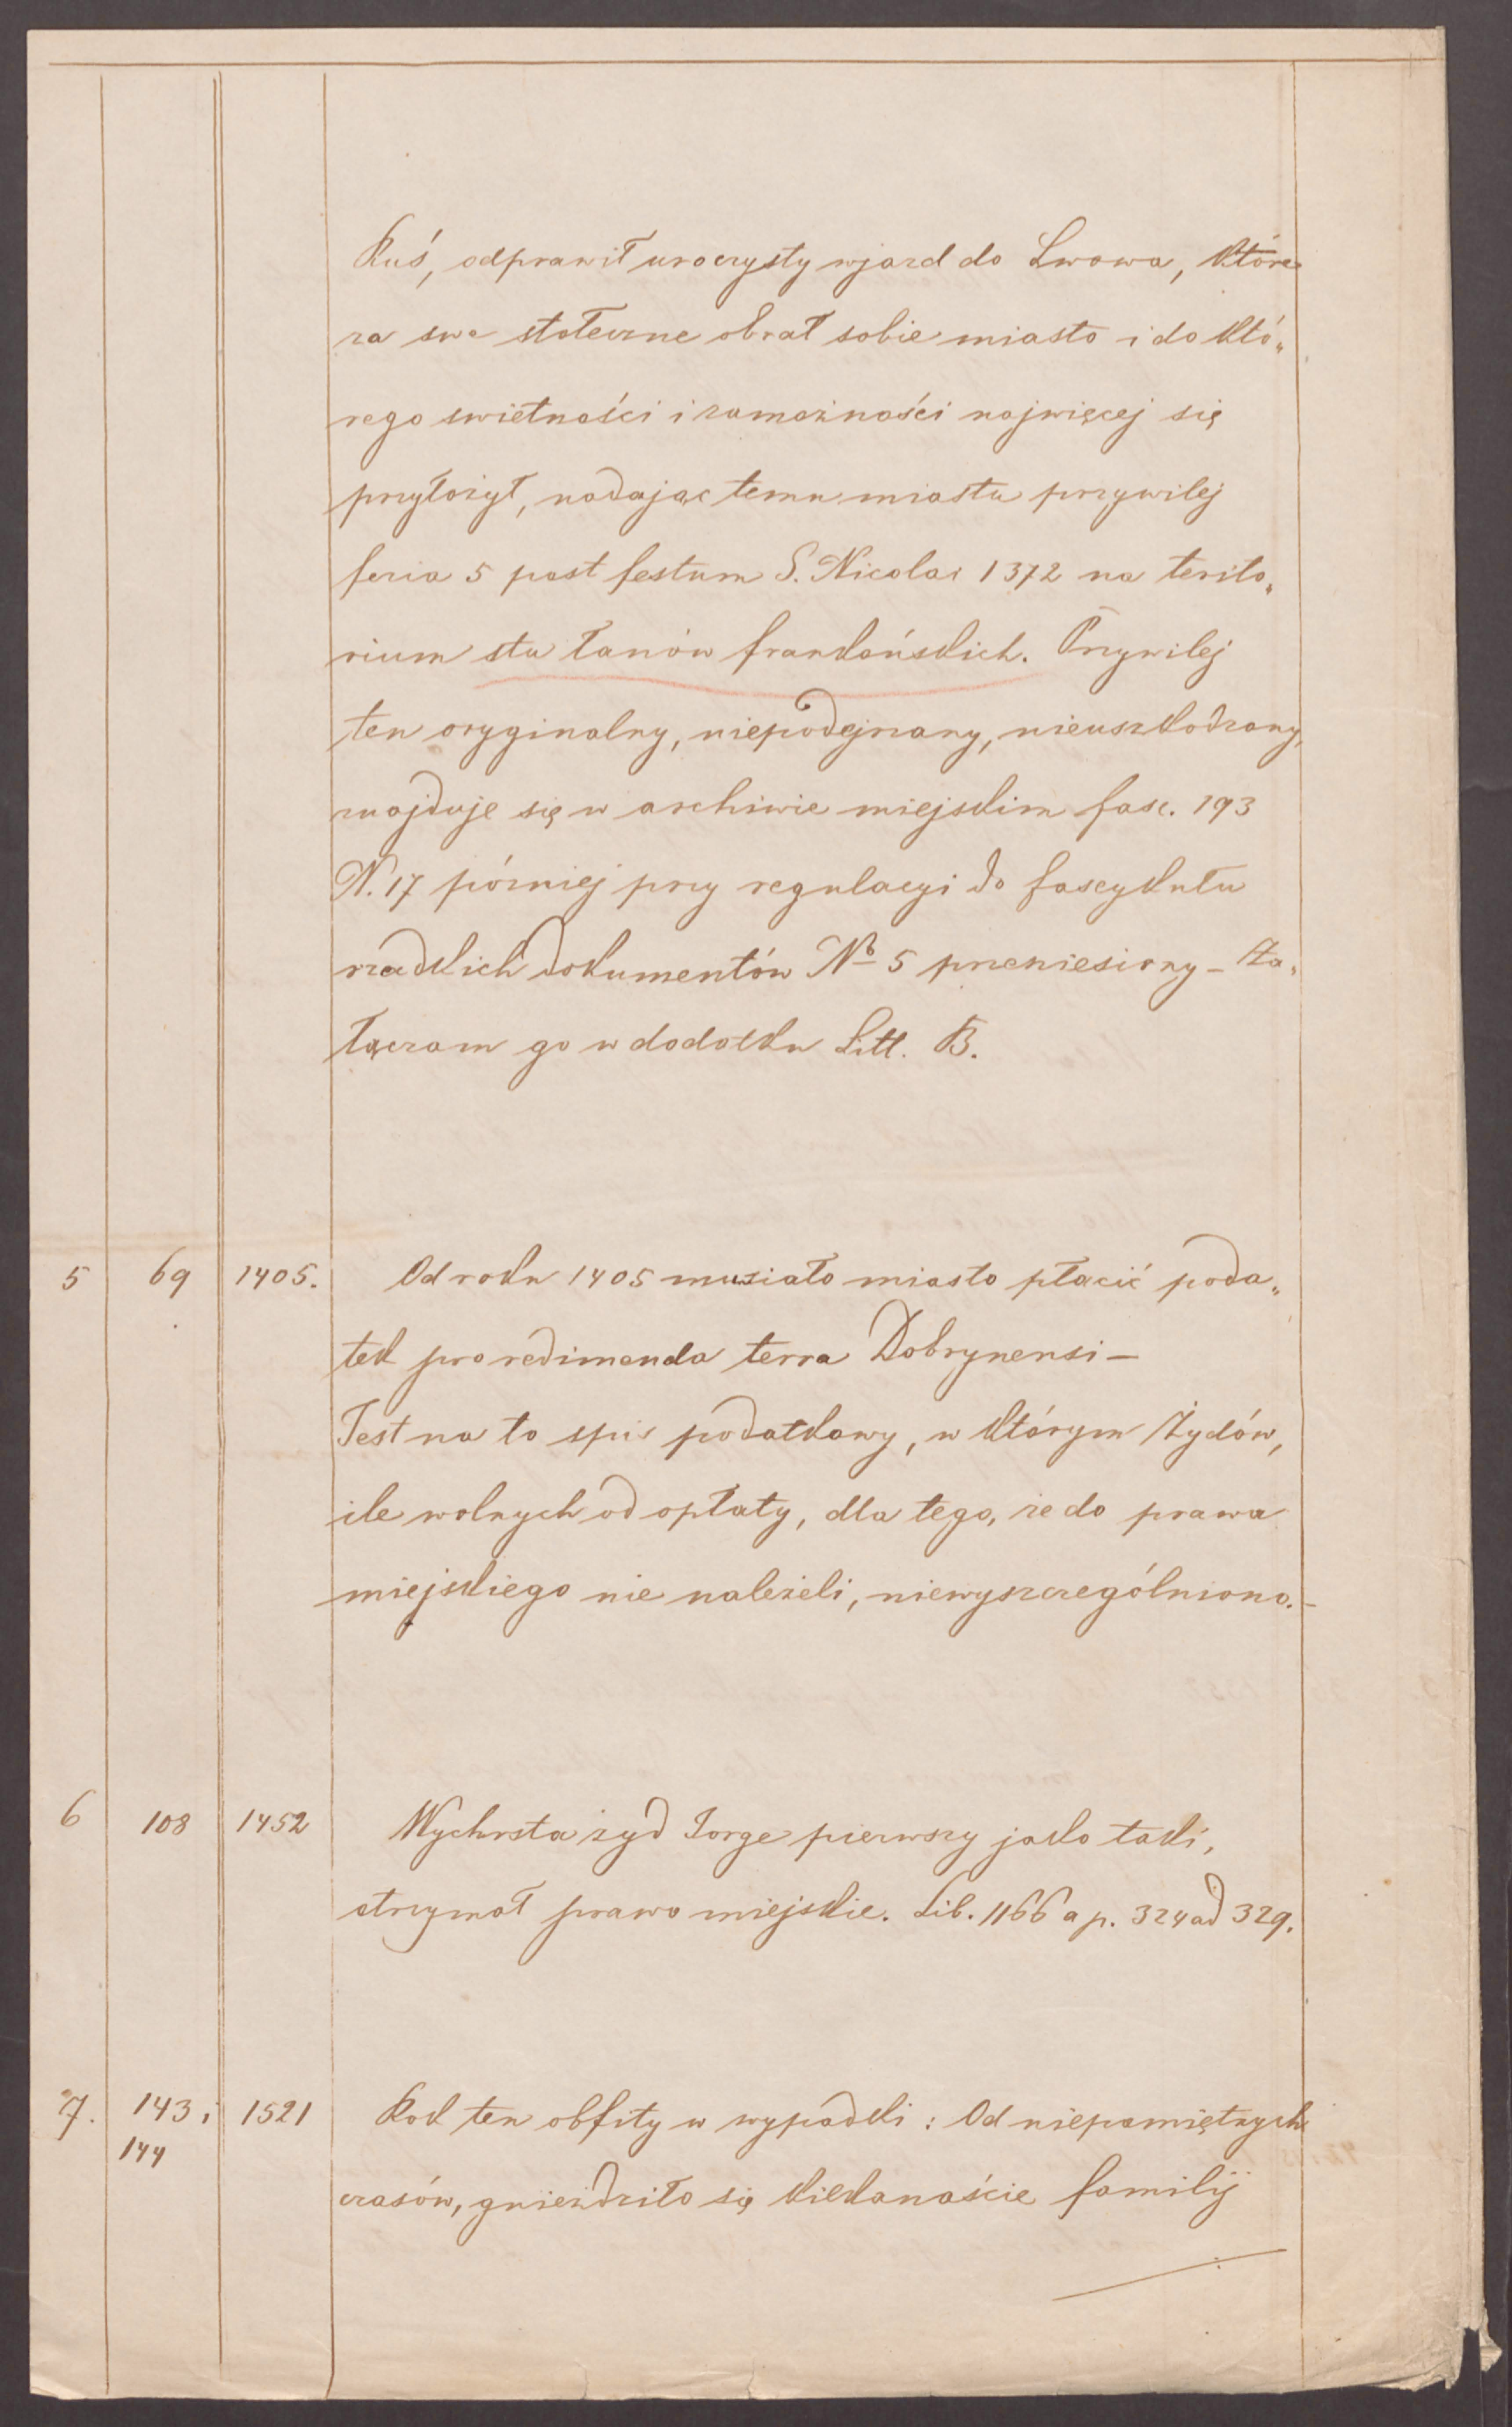 Ruś, odprawił uroczysty wjazd do Lwowa, które
za swe stołeczne obrał sobie miasto i do któ„
rego swietności i zamożności najwięcej się
przyłożył, nadając temu miastu przywilej
feria 5 post festum S. Nicolai 1372 na terito„
rium stu łanów frankońskich. Przywilej
ten oryginalny, niepodejrzany, nieuszkodzony,
znajduje się w archiwie miejskim fasc. 193
N. 17 pózniej przy regulacyi do fascykułu
rzadkich dokumentów No 5 przeniesiony – Za„
łączam go w dodatku Litt. B.
5 69 1405. Od roku 1405 musiało miasto płacić poda„
tek pro redimenda terra Dobrynensi –
Jest na to spis podatkowy, w którym Żydów,
ile wolnych od opłaty, dla tego, że do prawa
miejskiego nie należeli, niewyszczególniono. –
6 108 1452 Wychrsta żyd Jorge pierwszy jako taki,
otrzymał prawo miejskie. Lib. 1166 a p. 324 ad 329.
7. 143 i 1521 Rok ten obfity w wypadki: Od niepamiętnych
144
czasów, gnieździło się kilkanaście familij